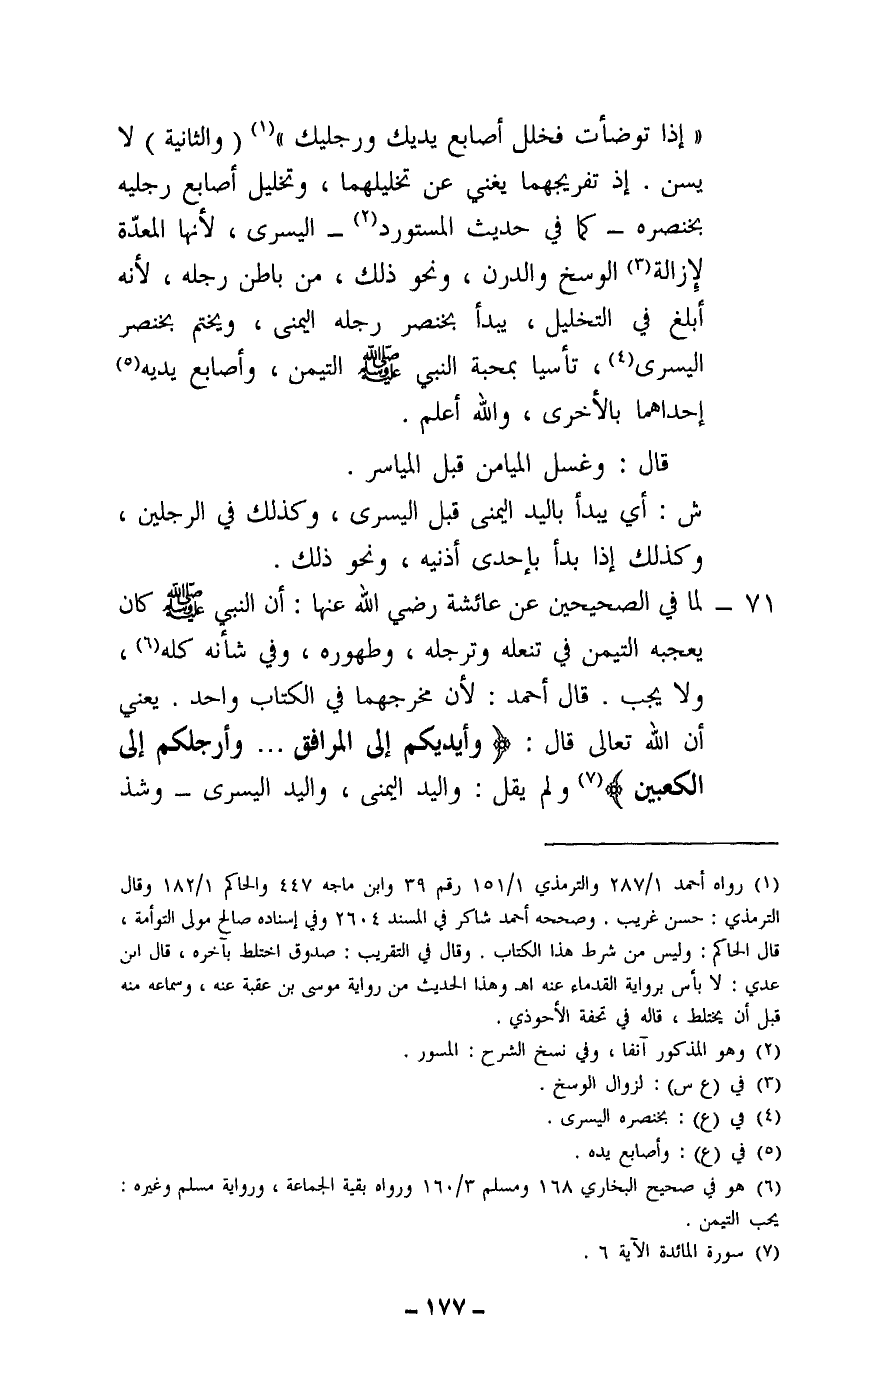 « إذا توضأت فخلل أصابع يديك ورجليك »(١) ( والثانية ) لا
يسن . إذ تفريجهما يغني عن تخليلهما ، وتخليل أصابع رجليه
بخنصره – كما في حديث المستورد(٢) – اليسرى ، لأنها المعدّة
لإزالة(٣) الوسخ والدرن ، ونحو ذلك ، من باطن رجله ، لأنه
أبلغ في التخليل ، يبدأ بخنصر رجله اليمنى ، ويختم بخنصر
اليسرى(٤) ، تأسيا بمحبة النبي ﷺ التيمن ، وأصابع يديه(٥)
إحداهما بالأخرى ، والله أعلم .
قال : وغسل الميامن قبل المياسر .
ش : أي يبدأ باليد اليمنى قبل اليسرى ، وكذلك في الرجلين ،
وكذلك إذا بدأ بإحدى أذنيه ، ونحو ذلك .
٧١ – لما في الصحيحين عن عائشة رضي الله عنها : أن النبي ﷺ كان
يعجبه التيمن في تنعله وترجله ، وطهوره ، وفي شأنه كله(٦) ،
ولا يجب . قال أحمد : لأن مخرجهما في الكتاب واحد . يعني
أن الله تعالى قال : ﴿ وأيديكم إلى المرافق ... وأرجلكم إلى
الكعبين ﴾(٧) ولم يقل : واليد اليمنى ، واليد اليسرى – وشذ
(١) رواه أحمد ٢٨٧/١ والترمذي ١٥١/١ رقم ٣٩ وابن ماجه ٤٤٧ والحاكم ١٨٢/١ وقال
الترمذي : حسن غريب . وصححه أحمد شاكر في المسند ٢٦٠٤ وفي إسناده صالح مولى التوأمة ،
قال الحاكم : وليس من شرط هذا الكتاب . وقال في التقريب : صدوق اختلط بآخره ، قال ابن
عدي : لا بأس برواية القدماء عنه اهـ وهذا الحديث من رواية موسى بن عقبة عنه ، وسماعه منه
قبل أن يختلط ، قاله في تحفة الأحوذي .
(٢) وهو المذكور آنفا ، وفي نسخ الشرح : المسور .
(٣) في (ع س) : لزوال الوسخ .
(٤) في (ع) : بخنصره اليسرى .
(٥) في (ع) : وأصابع يده .
(٦) هو في صحيح البخاري ١٦٨ ومسلم ١٦٠/٣ ورواه بقية الجماعة ، ورواية مسلم وغيره :
يحب التيمن .
(٧) سورة المائدة الآية ٦ .
– ١٧٧ –